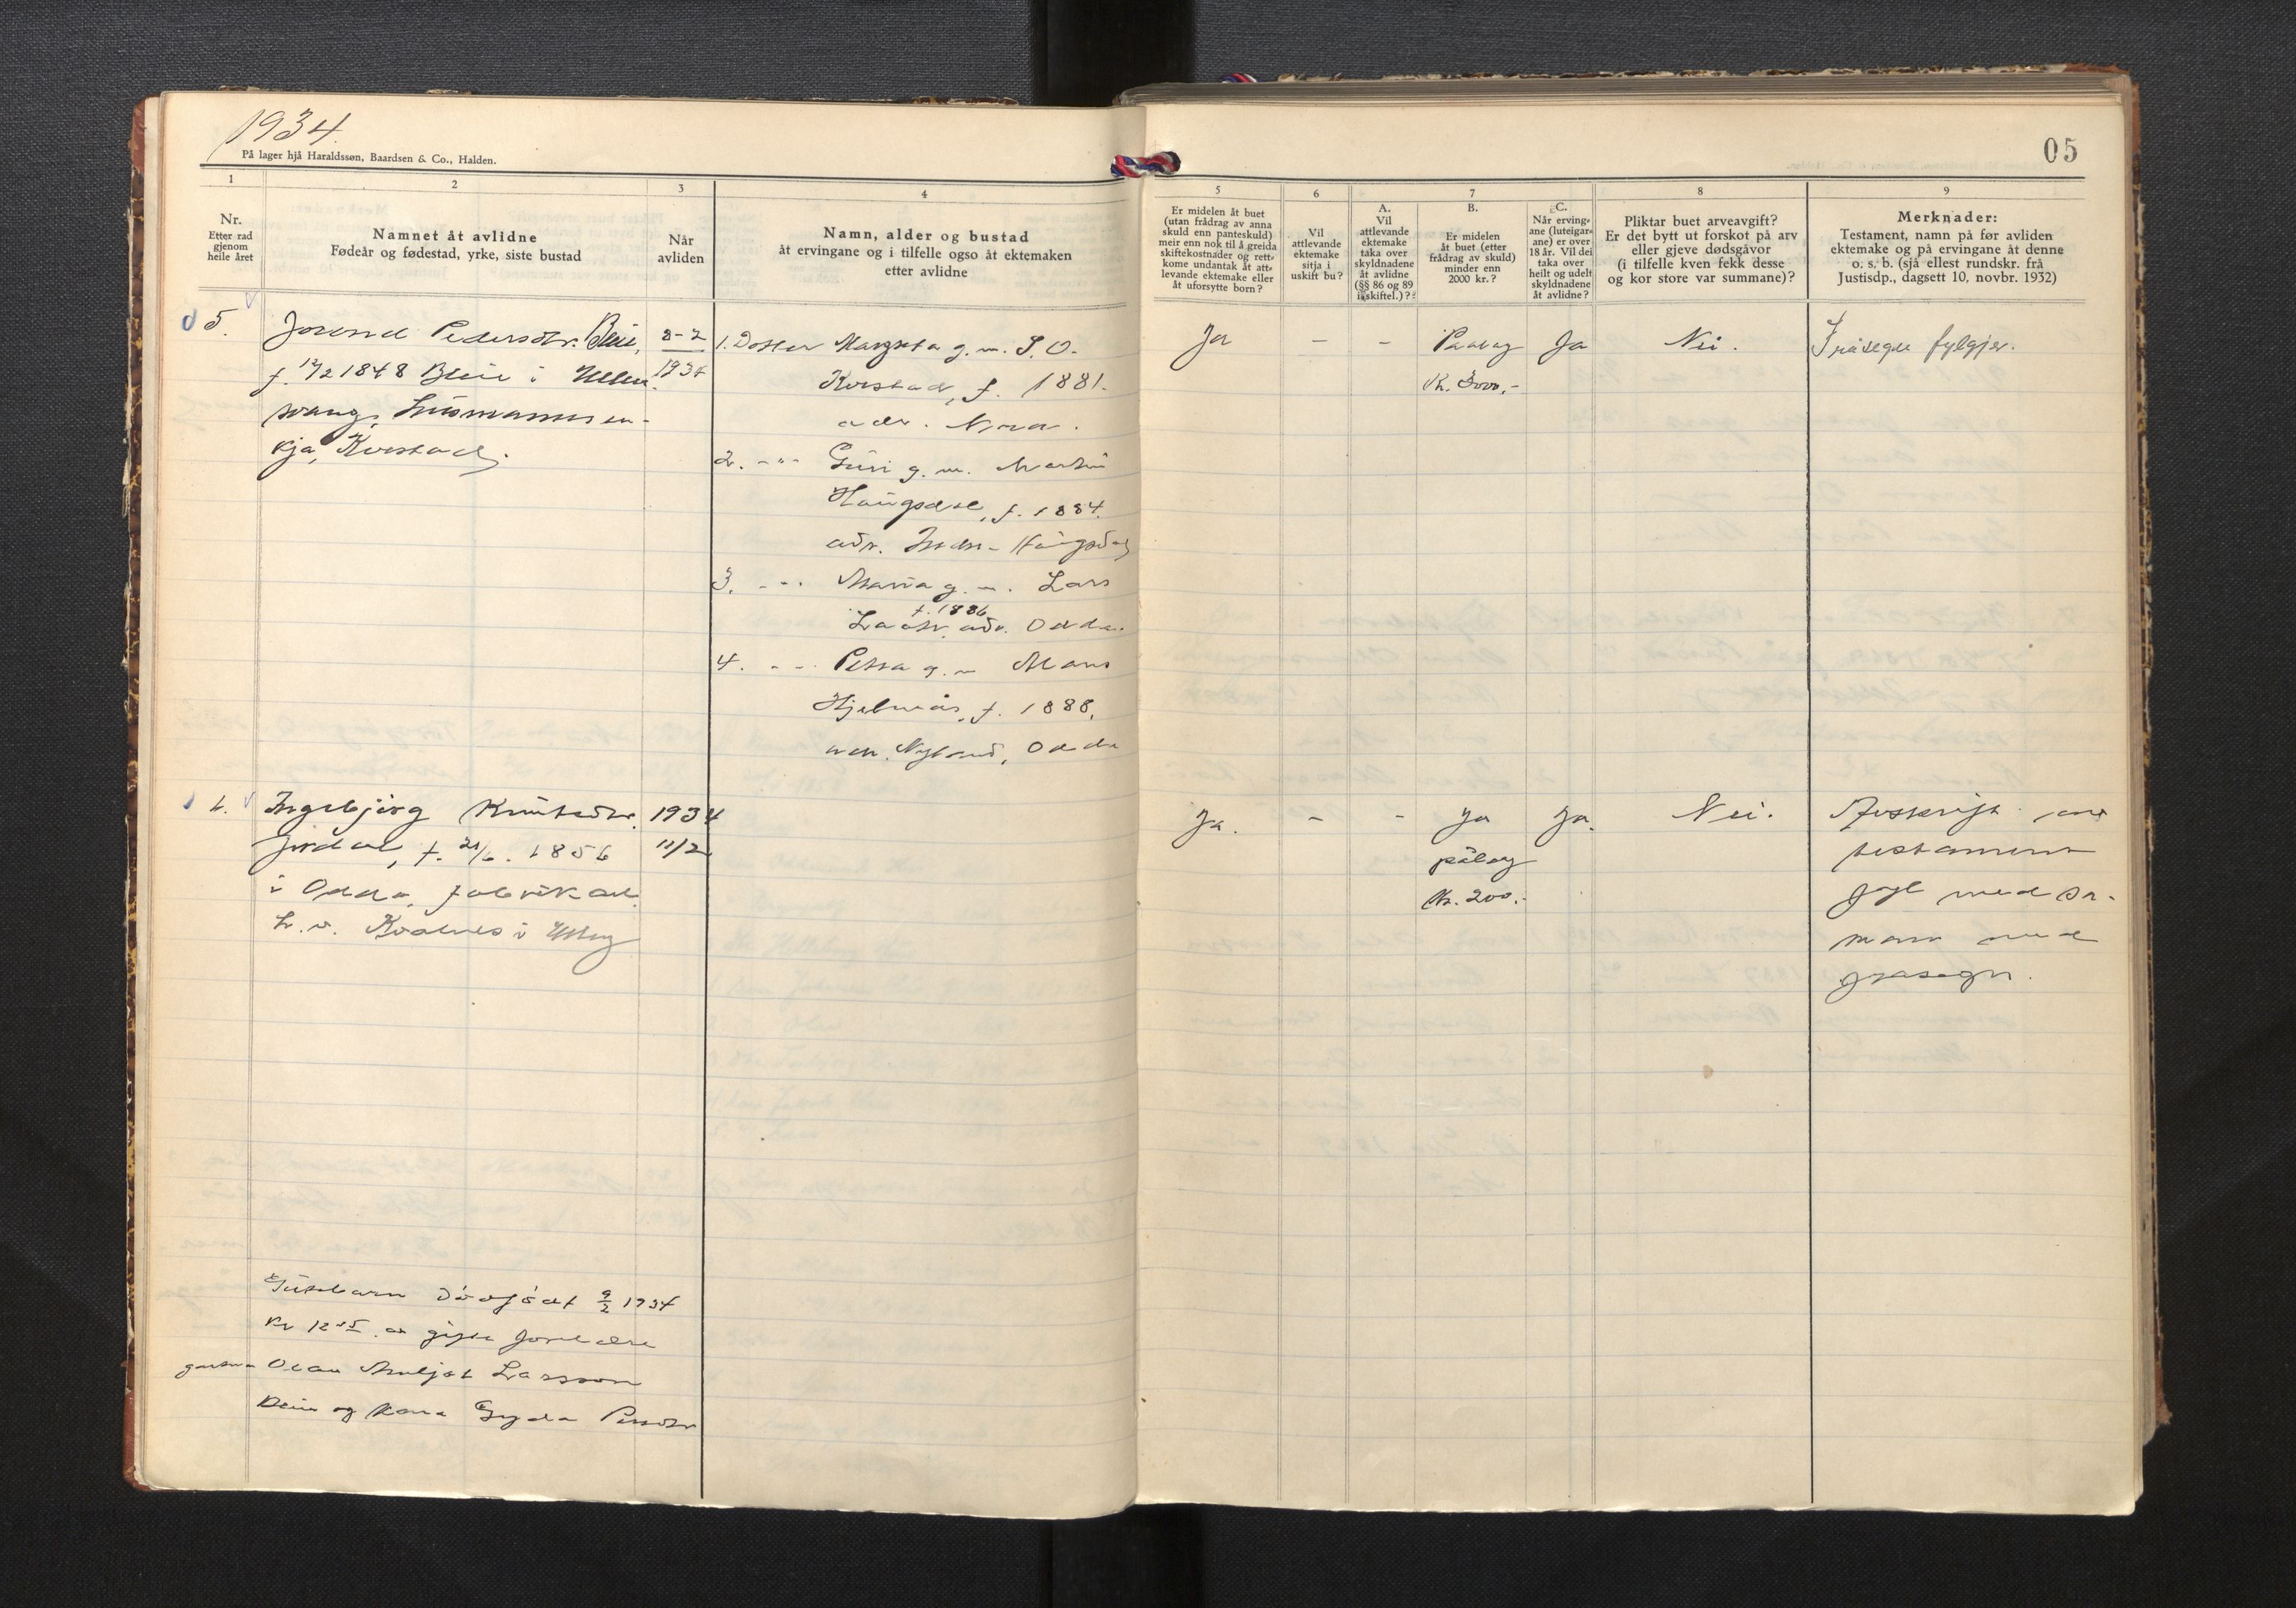 1934.
På lager hjå Haraldssøn, Baardsen & Co., Halden.
05
1
2
3
4
5
6
7
8
9
Nr.
Etter rad
gjenom
heile året
Namnet åt avlidne
Fødeår og fødestad, yrke, siste bustad
Når
avliden
Namn, alder og bustad
åt ervingane og i tilfelle ogso åt ektemaken
etter avlidne
Er midelen åt buet
(utan frådrag av anna
skuld enn panteskuld)
meir enn nok til å greida
skiftekostnader og rett-
kome undantak åt att-
levande ektemake eller
åt uforsytte born?
Vil
attlevande
ektemake
sitja i
uskift bu?
A.
Vil
attlevande
ektemake
taka over
skyldnadene
åt avlidne
(§§ 86 og 89
i skiftel.)?
B.
Er midelen
åt buet (etter
frådrag av skuld)
minder enn
2000 kr.?
C.
Når erving-
ane (luteigar-
ane) er over
18 år. Vil dei
taka over
heilt og udelt
skyldnadene
åt avlidne?
Pliktar buet arveavgift?
Er det bytt ut forskot på arv
eller gjeve dødsgåvor
(i tilfelle kven fekk desse
og kor store var summane)?
Merknader:
Testament, namn på før avliden
ektemake og på ervingane åt denne
o. s. b. (sjå ellest rundskr. frå
Justisdp., dagsett 10. novbr. 1932)
5.
Pedersdtr. Bleie,
f. 17/2 1848 Bleie i Ullens-
vang, Husmannsen-
kja, Kvestad.
8-2
1934
1. Dotter Margreta g. m. S. O.
Kvestad, f. 1881.
adr. Nina.
2. -"- Guri g. m. Martin
Haugsdal, f. 1884.
adr. Indre-Haugsdal
3. -"- Maria g. m. Lars
f. 1886
adr. Odda.
4. -"- Petra g. m. Mons
Hjelmås, f. 1888,
adr. Nyland, Odda
Ja
-
-
Paalag
Kr. 3000,-
Ja
Nei.
Fråsegn fylgjer.
6.
Ingebjørg Knutsdtr.
Jordal, f. 21/6. 1856
i Odda, fabrikarb.
h. v. Kvalnes i
1934
11/2
Ja.
-
-
Ja
pålag
Kr. 200.-
Ja.
Nei.
Avskrift av
testament
fylgl med sa-
man med
fråsegn.
Gutebarn dødfødt 9/2 1934
Kl 12 15 av gifte foreldre
gartnar Olav Larsson
Bleie og kona Gyda Persdtr